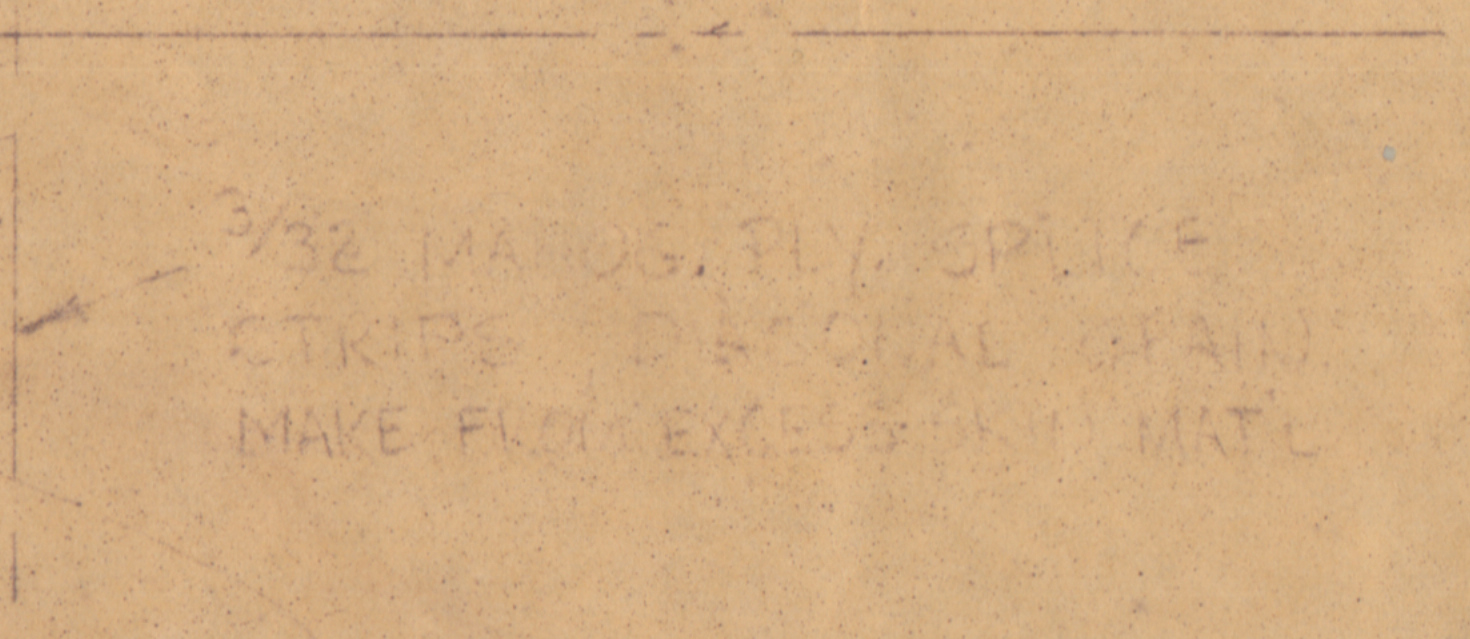 3/32 MAHOG. PLY. SPLICE
STRIPS DIAGONAL GRAIN.
MAKE FROM EXCESS SKIN MAT'L